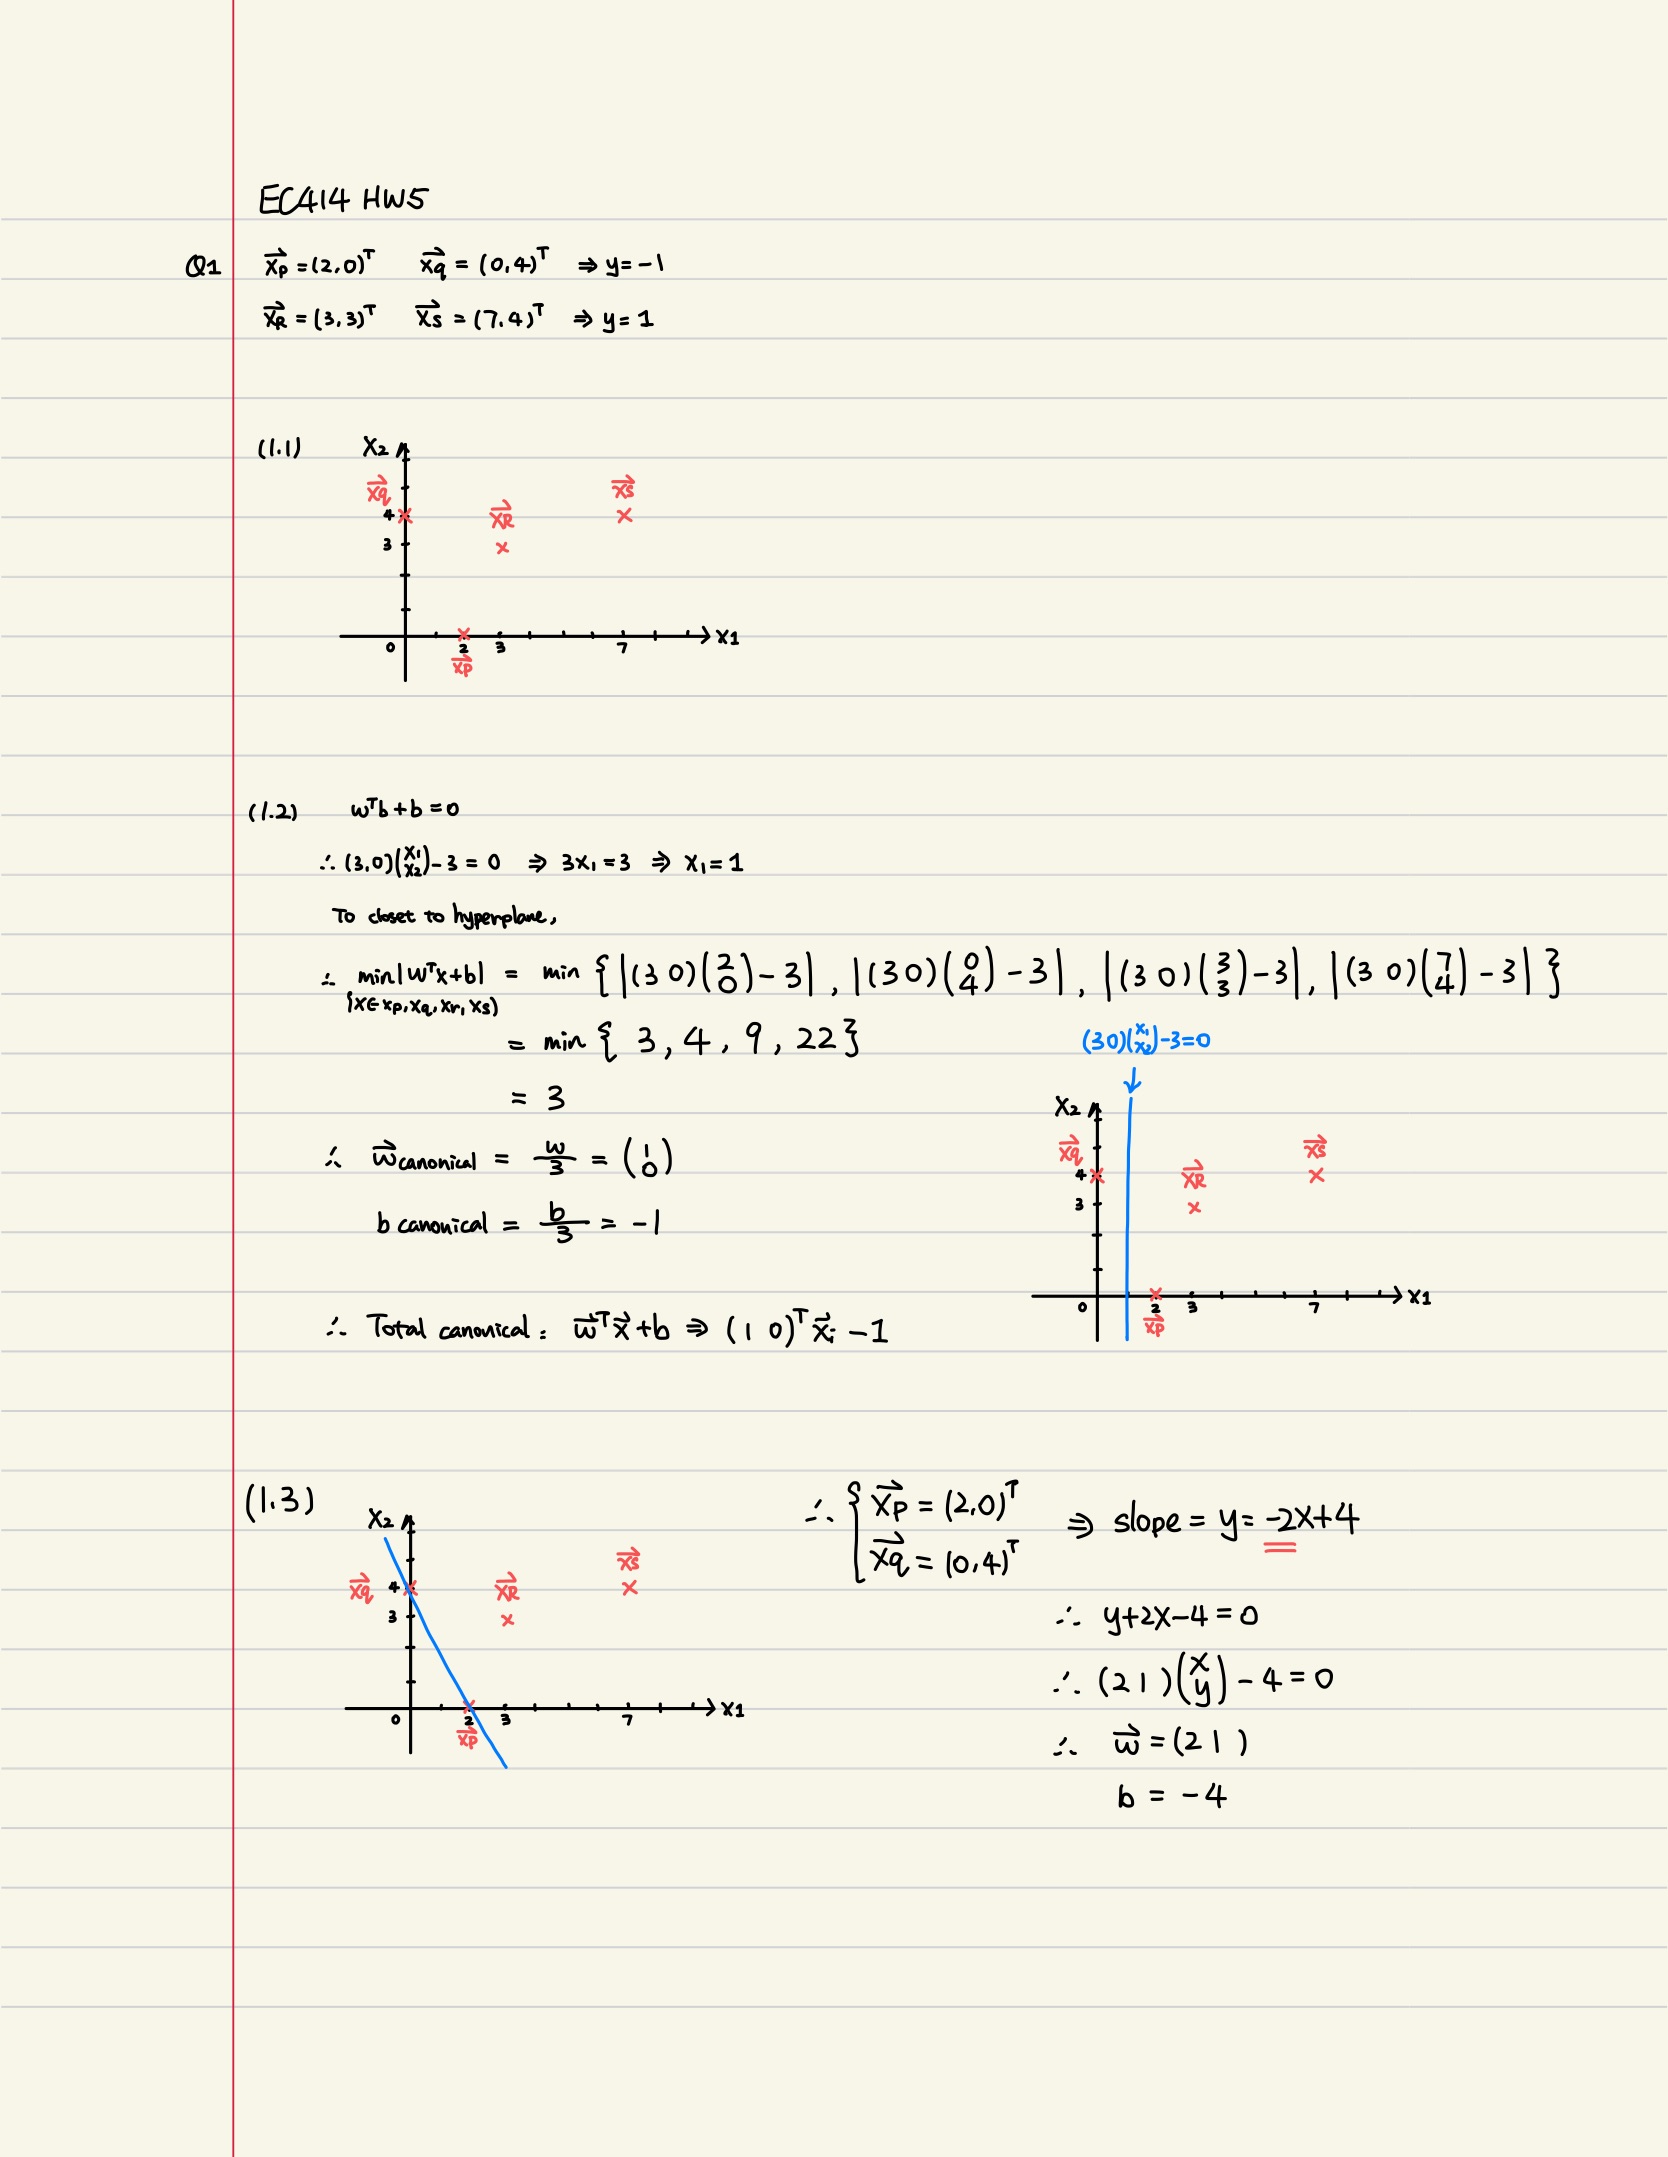 EC414 HW5
Q1 x⃗p = (2,0)ᵀ x⃗q = (0,4)ᵀ ⇒ y = -1
x⃗R = (3,3)ᵀ x⃗s = (7,4)ᵀ ⇒ y = 1
(1.1)
X2
x⃗q x⃗R x⃗s
4
3
0 2 3 7 X1
x⃗p
(1.2) wᵀb + b = 0
∴ (3,0)(x1 x2) - 3 = 0 ⇒ 3x1 = 3 ⇒ x1 = 1
To closet to hyperplane,
∴ min|wᵀx+b| = min {|(3 0)(2 0) - 3|, |(3 0)(0 4) - 3|, |(3 0)(3 3) - 3|, |(3 0)(7 4) - 3|}
{x∈xp, xq, xr, xs}
= min { 3, 4, 9, 22 }
= 3
∴ w⃗canonical = w/3 = (1 0)
b canonical = b/3 = -1
∴ Total canonical : w⃗ᵀx⃗ + b ⇒ (1 0)ᵀ x⃗i - 1
(3 0)(x1 x2) - 3 = 0
X2
x⃗q x⃗R x⃗s
4
3
0 2 3 7 X1
x⃗p
(1.3)
X2
x⃗q x⃗R x⃗s
4
3
0 2 3 7 X1
x⃗p
∴ { x⃗p = (2,0)ᵀ
x⃗q = (0,4)ᵀ
⇒ slope = y = -2x+4
∴ y+2x-4 = 0
∴ (2 1)(x y) - 4 = 0
∴ w⃗ = (2 1)
b = -4